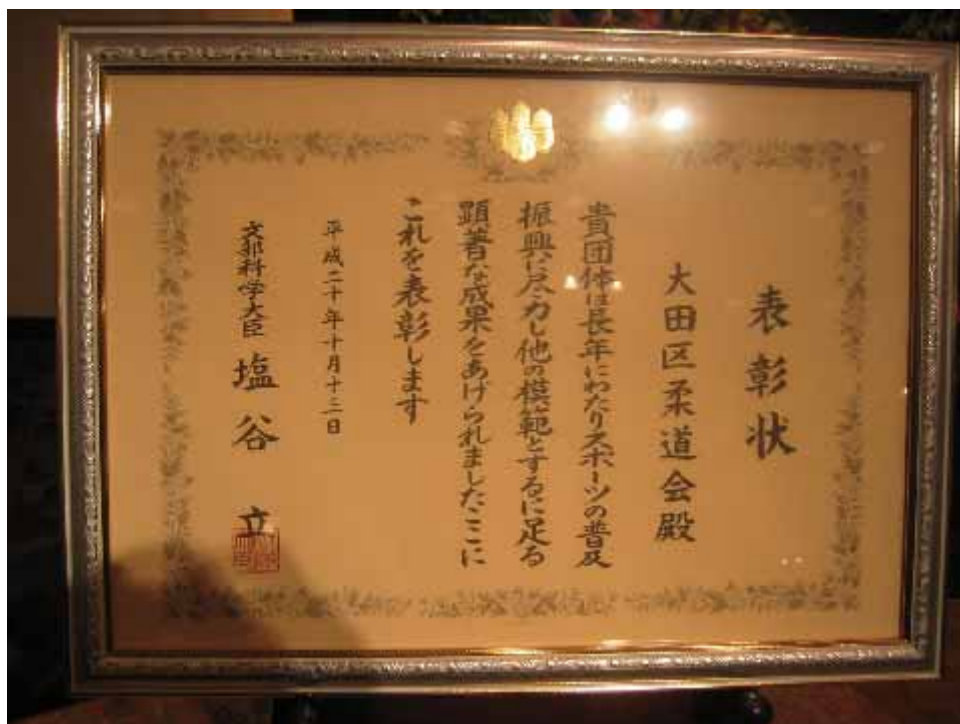 表彰状
大田区柔道会殿
貴団体は長年にわたりスポーツの普及
振興に尽力し他の模範とするに足る
顕著な成果をあげられましたここに
これを表彰します
平成二十年十月十三日
文部科学大臣 塩谷 立